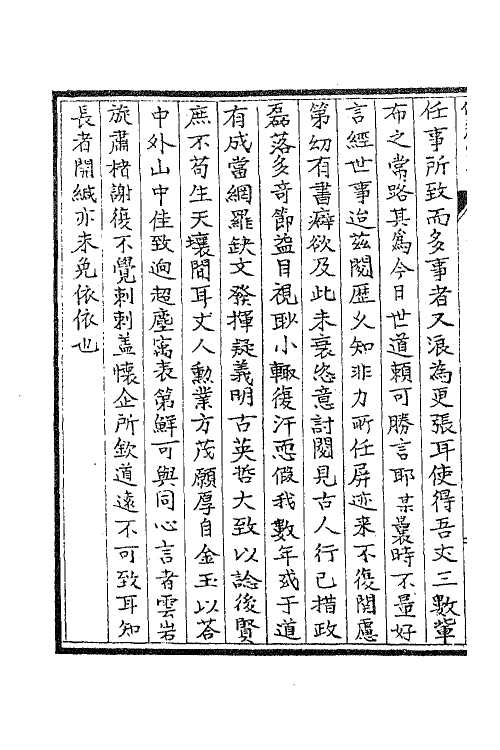 任事所致而多事者又浪為更張耳使得吾丈三數輩
布之當路其爲今日世道賴可勝言耶某曩時不量好
言經世事迨茲閱歷乆知非力所任屏迹来不復關慮
第幼有書癖欲及此未衰恣意討閱見古人行己措政
磊落多奇節益自視眇小輙復汗恧假我數年或于道
有成當網羅缺文發揮疑義明古英哲大致以諗後賢
庶不苟生天壤間耳丈人勲業方茂願厚自金玉以荅
中外山中佳致逈超塵寓表第鮮可與同心言者雲岩
旋肅楮謝復不覺刺刺蓋懷企所欽道遠不可致耳知
長者開緘亦未免依依也